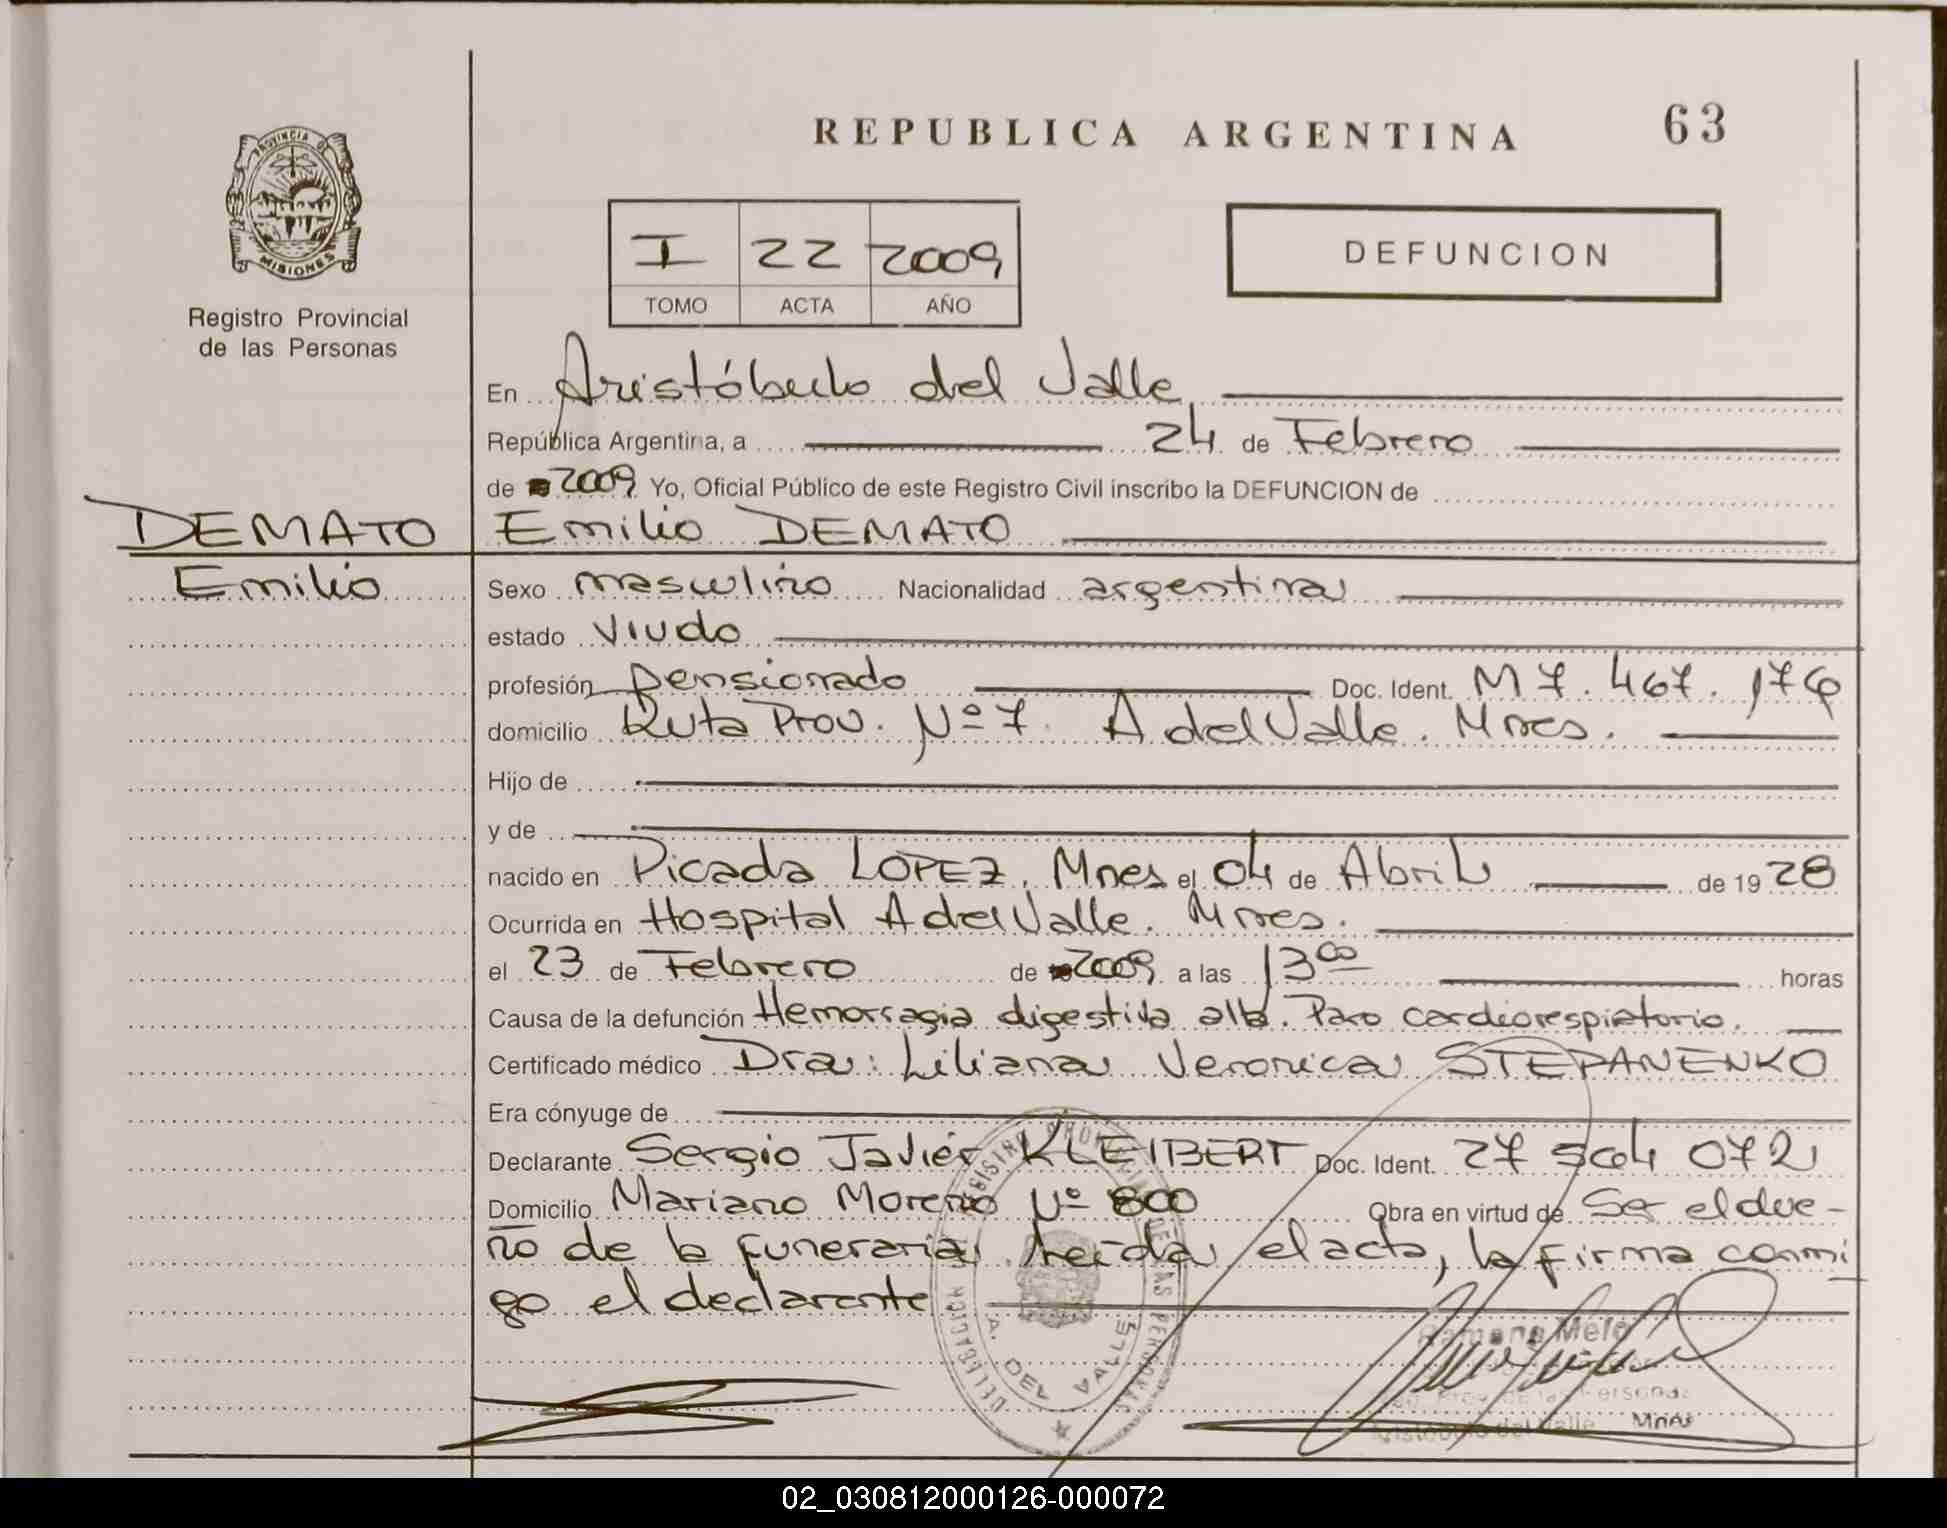 REPUBLICA ARGENTINA
63
PROVINCIA DE
MISIONES
Registro Provincial
de las Personas
I 22 2009
TOMO ACTA AÑO
DEFUNCION
En Aristóbulo del Valle
República Argentina, a 24 de Febrero
de 2009 Yo, Oficial Público de este Registro Civil inscribo la DEFUNCION de
DEMATO
Emilio
Emilio DEMATO
Sexo masculino Nacionalidad argentina
estado Viudo
profesión pensionado Doc. Ident. M 7.467.176
domicilio Ruta Prov. Nº 7. A del Valle. Mnes.
Hijo de
y de
nacido en Picada LOPEZ. Mnes el 04 de Abril de 1928
Ocurrida en Hospital A del Valle. Mnes.
el 23 de Febrero de 2009 a las 13⁰⁰ horas
Causa de la defunción Hemorragia digestiva alta. Paro cardiorespiratorio.
Certificado médico Dra: Liliana Veronica STEPANENKO
Era cónyuge de
Declarante Sergio Javier KLEIBERT Doc. Ident. 27 504 072
Domicilio Mariano Moreno Nº 800 Obra en virtud de Ser el due-
ño de la funeraria. Leída el acta, la firma conmi
go el declarante
DELEGACION REGISTRO PROVINCIAL DE LAS PERSONAS
A. DEL VALLE
Ramona Melo
Aristóbulo del Valle Mnes
02_030812000126-000072